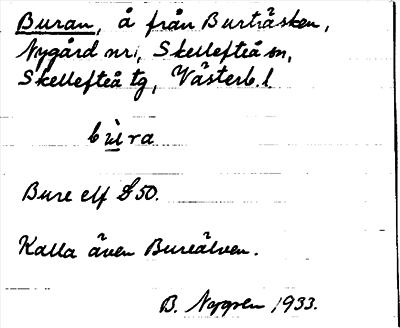 Buran, å från Burträsken,
Nygård nr 1, Skellefteå sn,
Skellefteå tg, Västerb. l.
bùra
Bure elf S 50.
Kalla även Bureälven.
B. Nygren 1933.